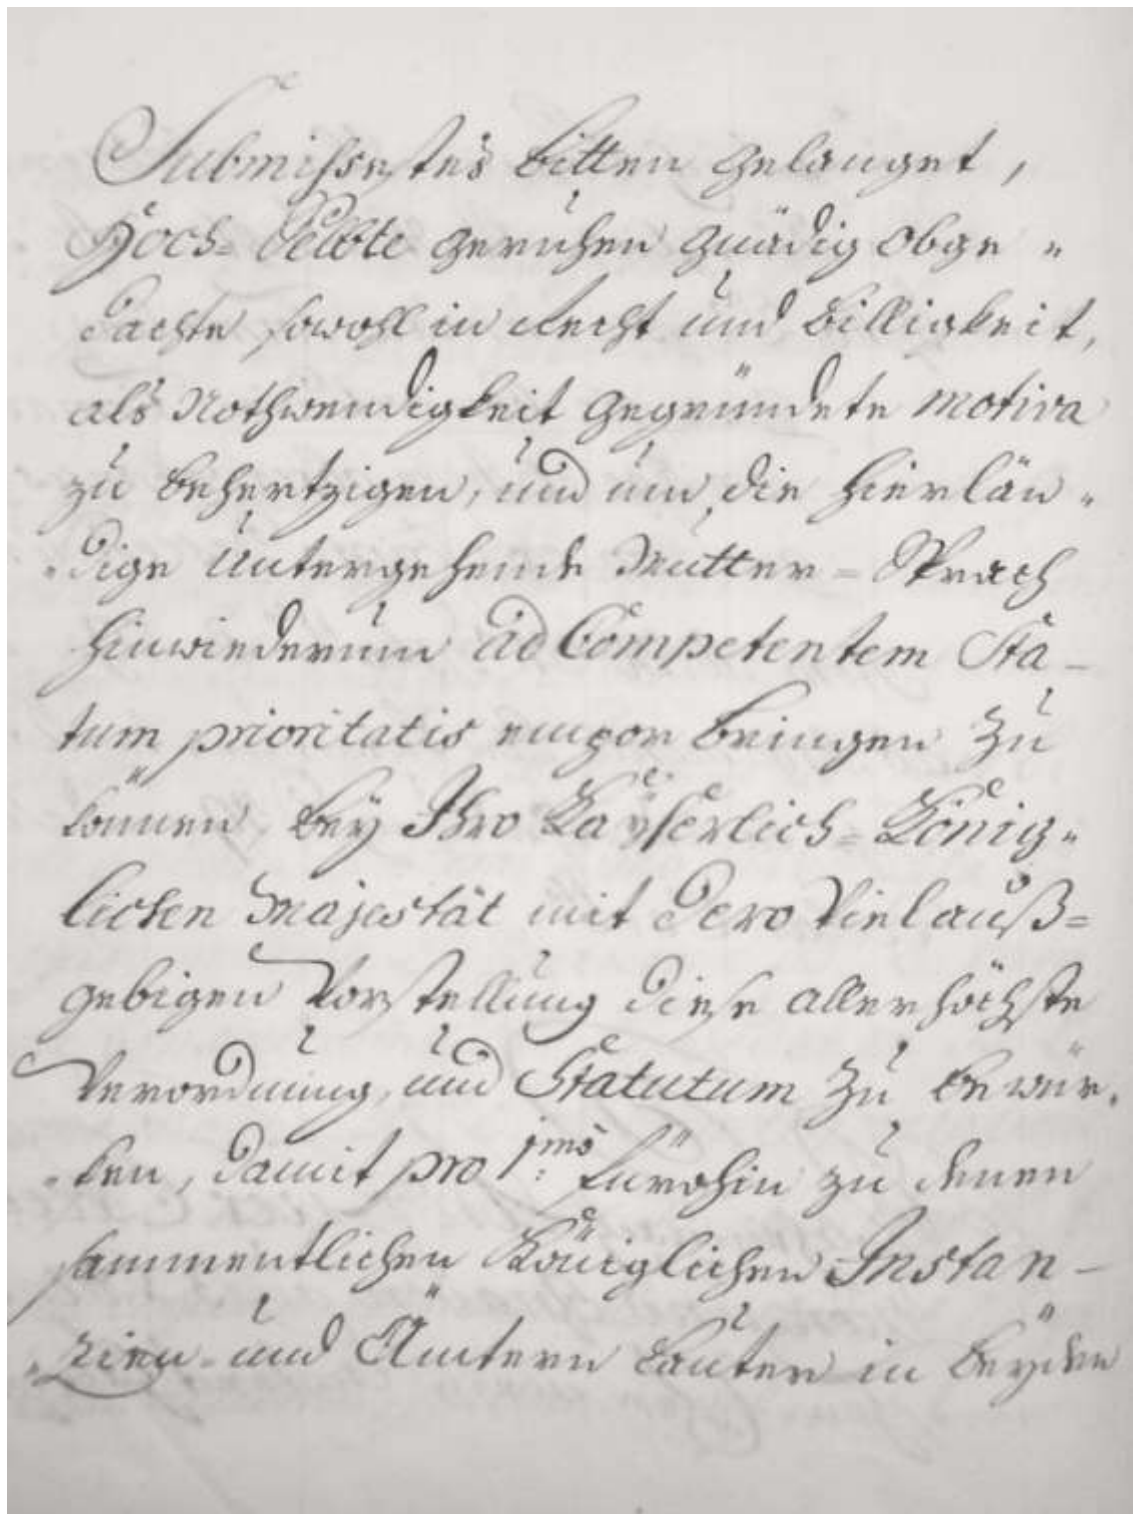 Submissestes bitten gelanget,
Hoch-Selbte geruhen gnädig obge "
dachte sowohl in Recht und Billigkeit,
als Nothwendigkeit gegründete motiva
zu behertzigen, und um die hierlän "
"dige untergehende Mutter-Sprach
hinwiederum ad Competentem Sta-
tum prioritatis empor bringen zu
können bey Ihro Kayserlich-König "
lichen Majestät mit dero vielauß=
gebigen Vorstellung diese allerhöchste
Verordnung, und Statutum zu bewür "
"ken, damit pro 1mo: fürohin zu denen
sammentlichen Königlichen Instan-
"zien und Ämtern lauter in beyden